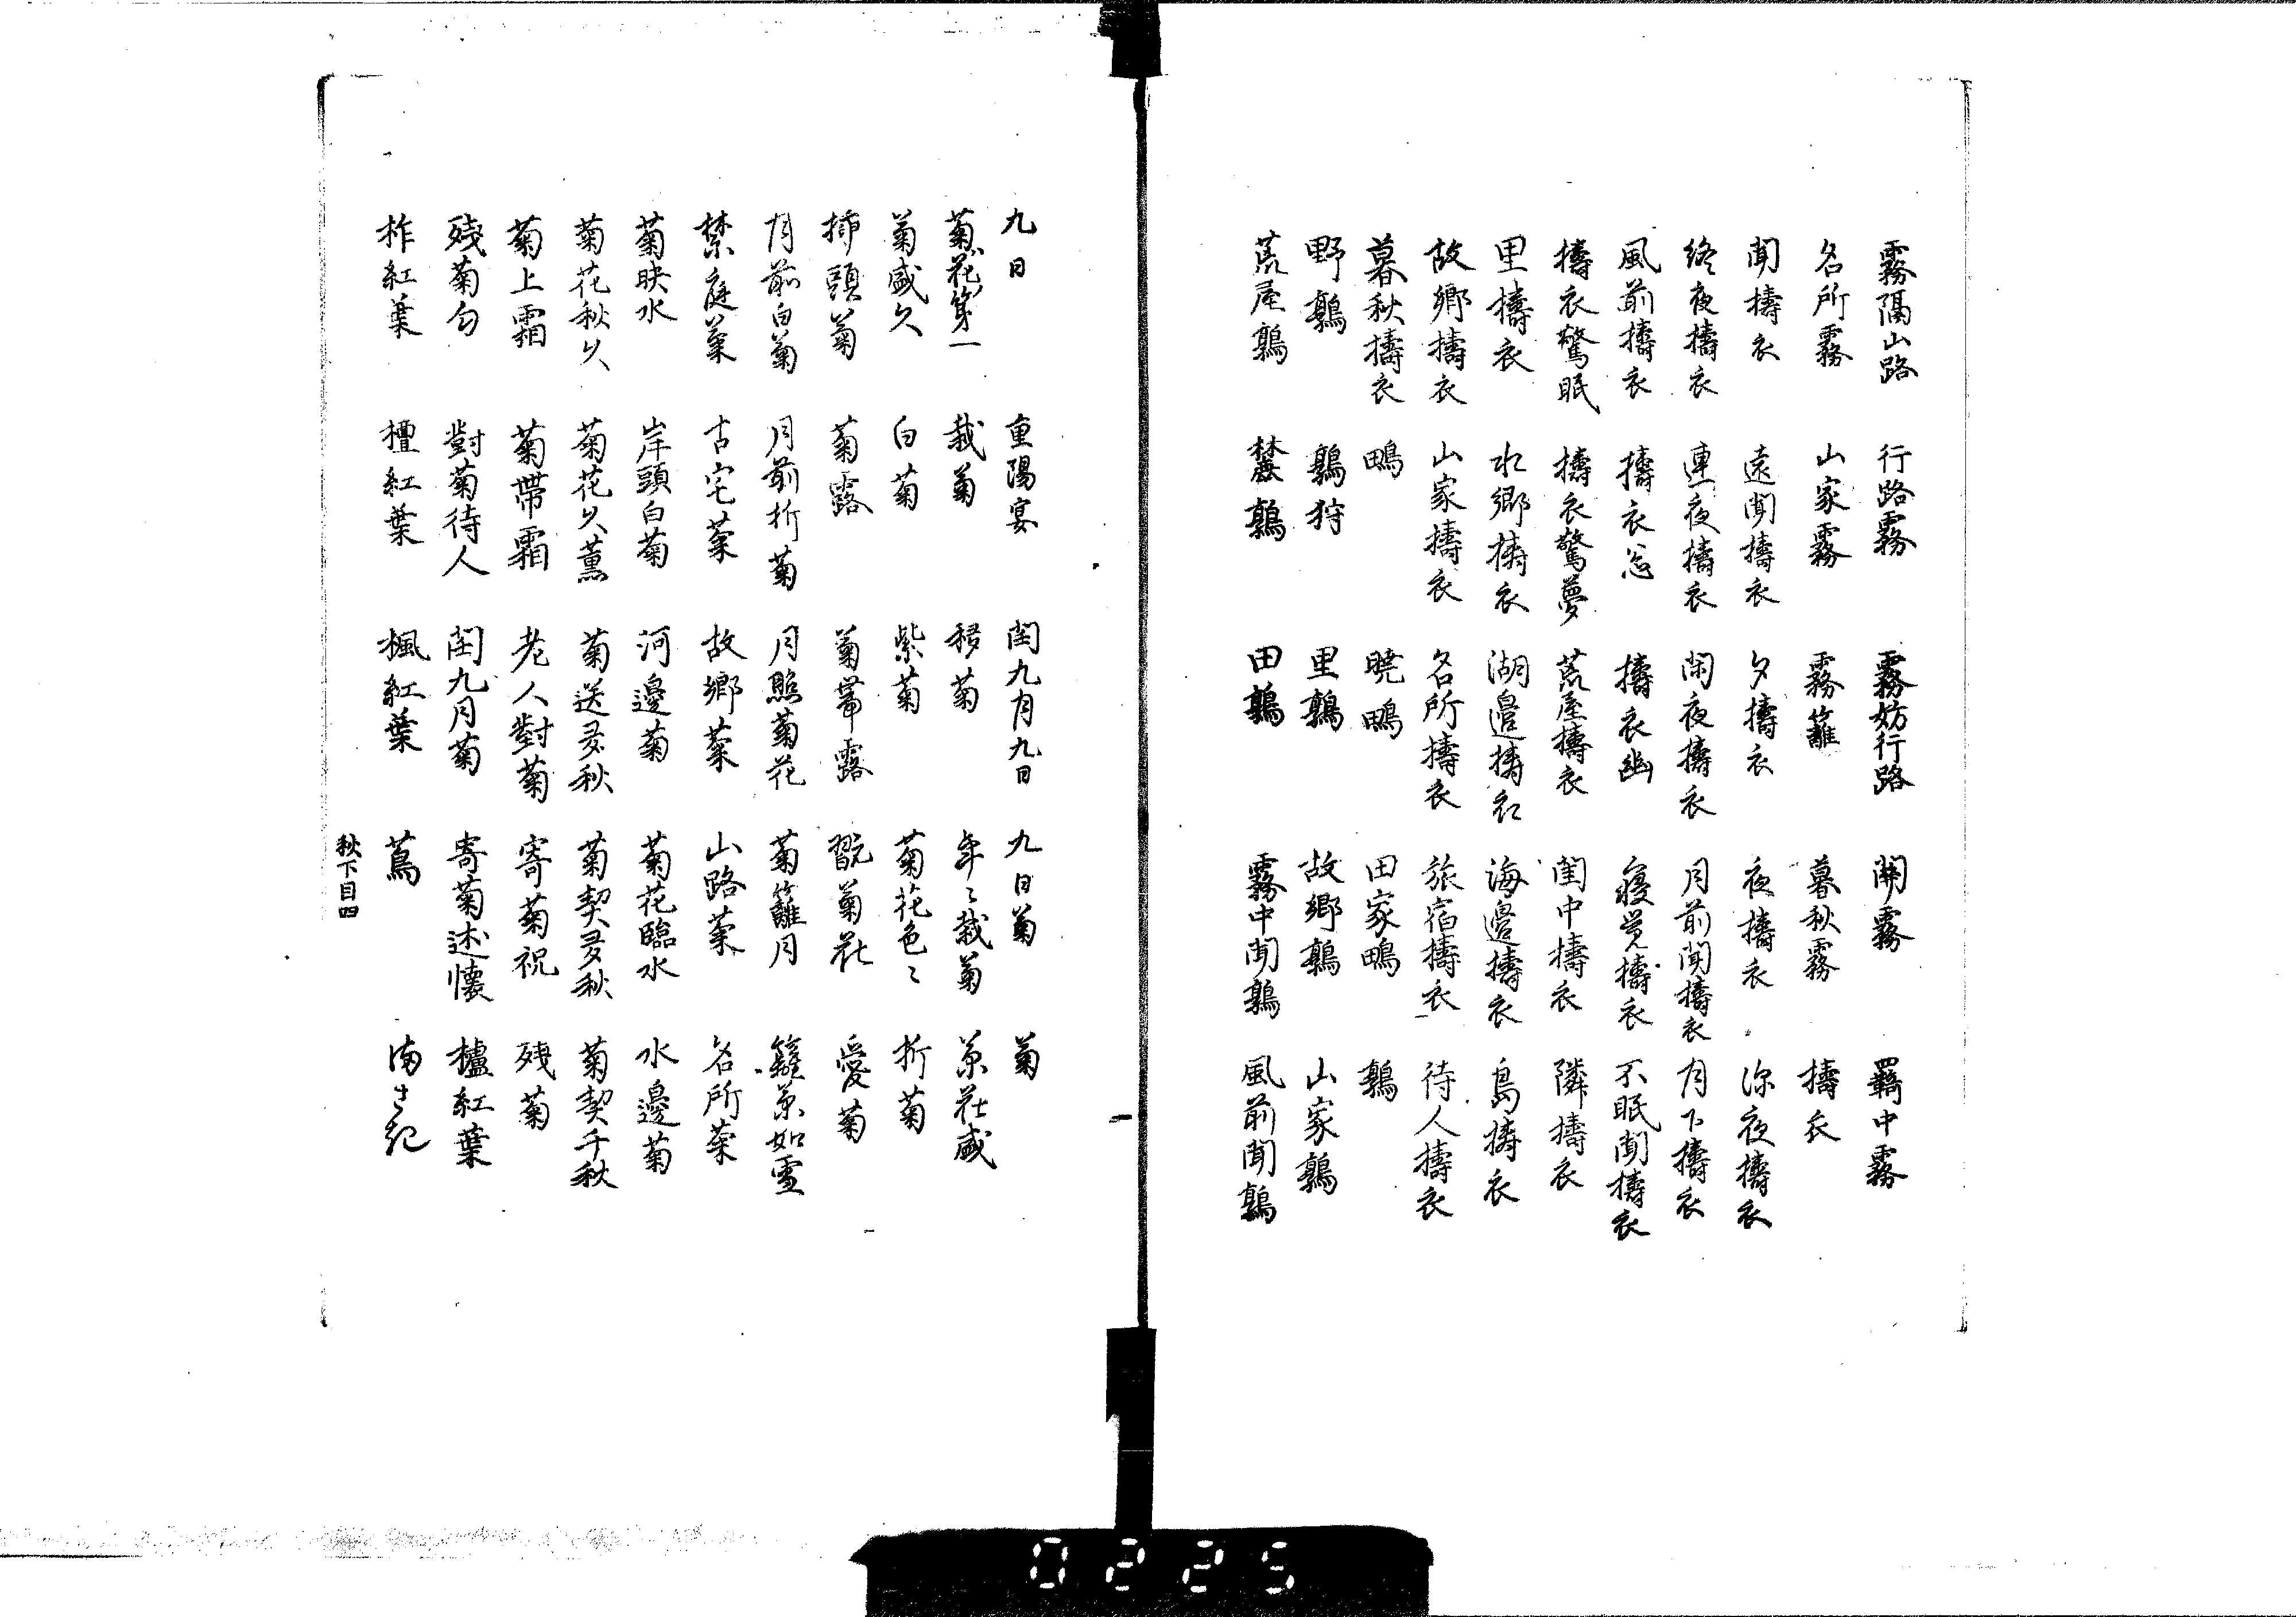 霧隔山路　行路霧　霧妨行路　関霧　羇中霧
名所霧　山家霧　霧籬　暮秋霧　擣衣
聞擣衣　遠聞擣衣　夕擣衣　夜擣衣　深夜擣衣
終夜擣衣　連夜擣衣　閑夜擣衣　月前聞擣衣　月下擣衣
風前擣衣　擣衣怱　擣衣幽　寝覚擣衣　不眠聞擣衣
擣衣驚眠　擣衣驚夢　荒屋擣衣　閨中擣衣　隣擣衣
里擣衣　水郷擣衣　湖邉擣衣　海邉擣衣　島擣衣
故郷擣衣　山家擣衣　名所擣衣　旅宿擣衣　待人擣衣
暮秋擣衣　鴫　暁鴫　田家鴫　鶉
野鶉　鶉狩　里鶉　故郷鶉　山家鶉
荒屋鶉　麓鶉　田鶉　霧中聞鶉　風前聞鶉
九日　重陽宴　閏九月九日　九日菊　菊
菊花第一　栽菊　移菊　年〻栽菊　菊花盛
菊盛久　白菊　紫菊　菊花色〻　折菊
挿頭菊　菊露　菊帯露　翫菊花　愛菊
月前白菊　月前折菊　月照菊花　菊籬月　籬菊如雪
禁庭菊　古宅菊　故郷菊　山路菊　名所菊
菊映水　岸頭白菊　河邊菊　菊花臨水　水邊菊
菊花秋久　菊花久薫　菊送多秋　菊契多秋　菊契千秋
菊上霜　菊帶霜　老人對菊　寄菊祝　残菊
残菊匂　對菊待人　閏九月菊　寄菊述懐　櫨紅葉
柞紅葉　檀紅葉　楓紅葉　蔦
秋下目四
0225